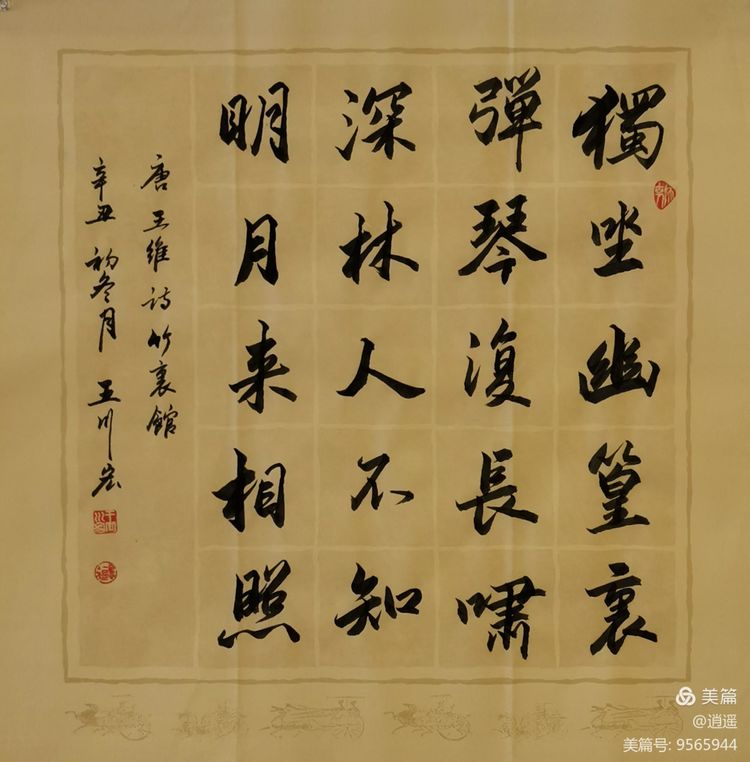 獨坐幽篁裏
彈琴復長嘯
深林人不知
明月来相照
唐王維詩竹裏館
辛丑初冬月王川宏
美篇
@逍遥
美篇号: 9565944